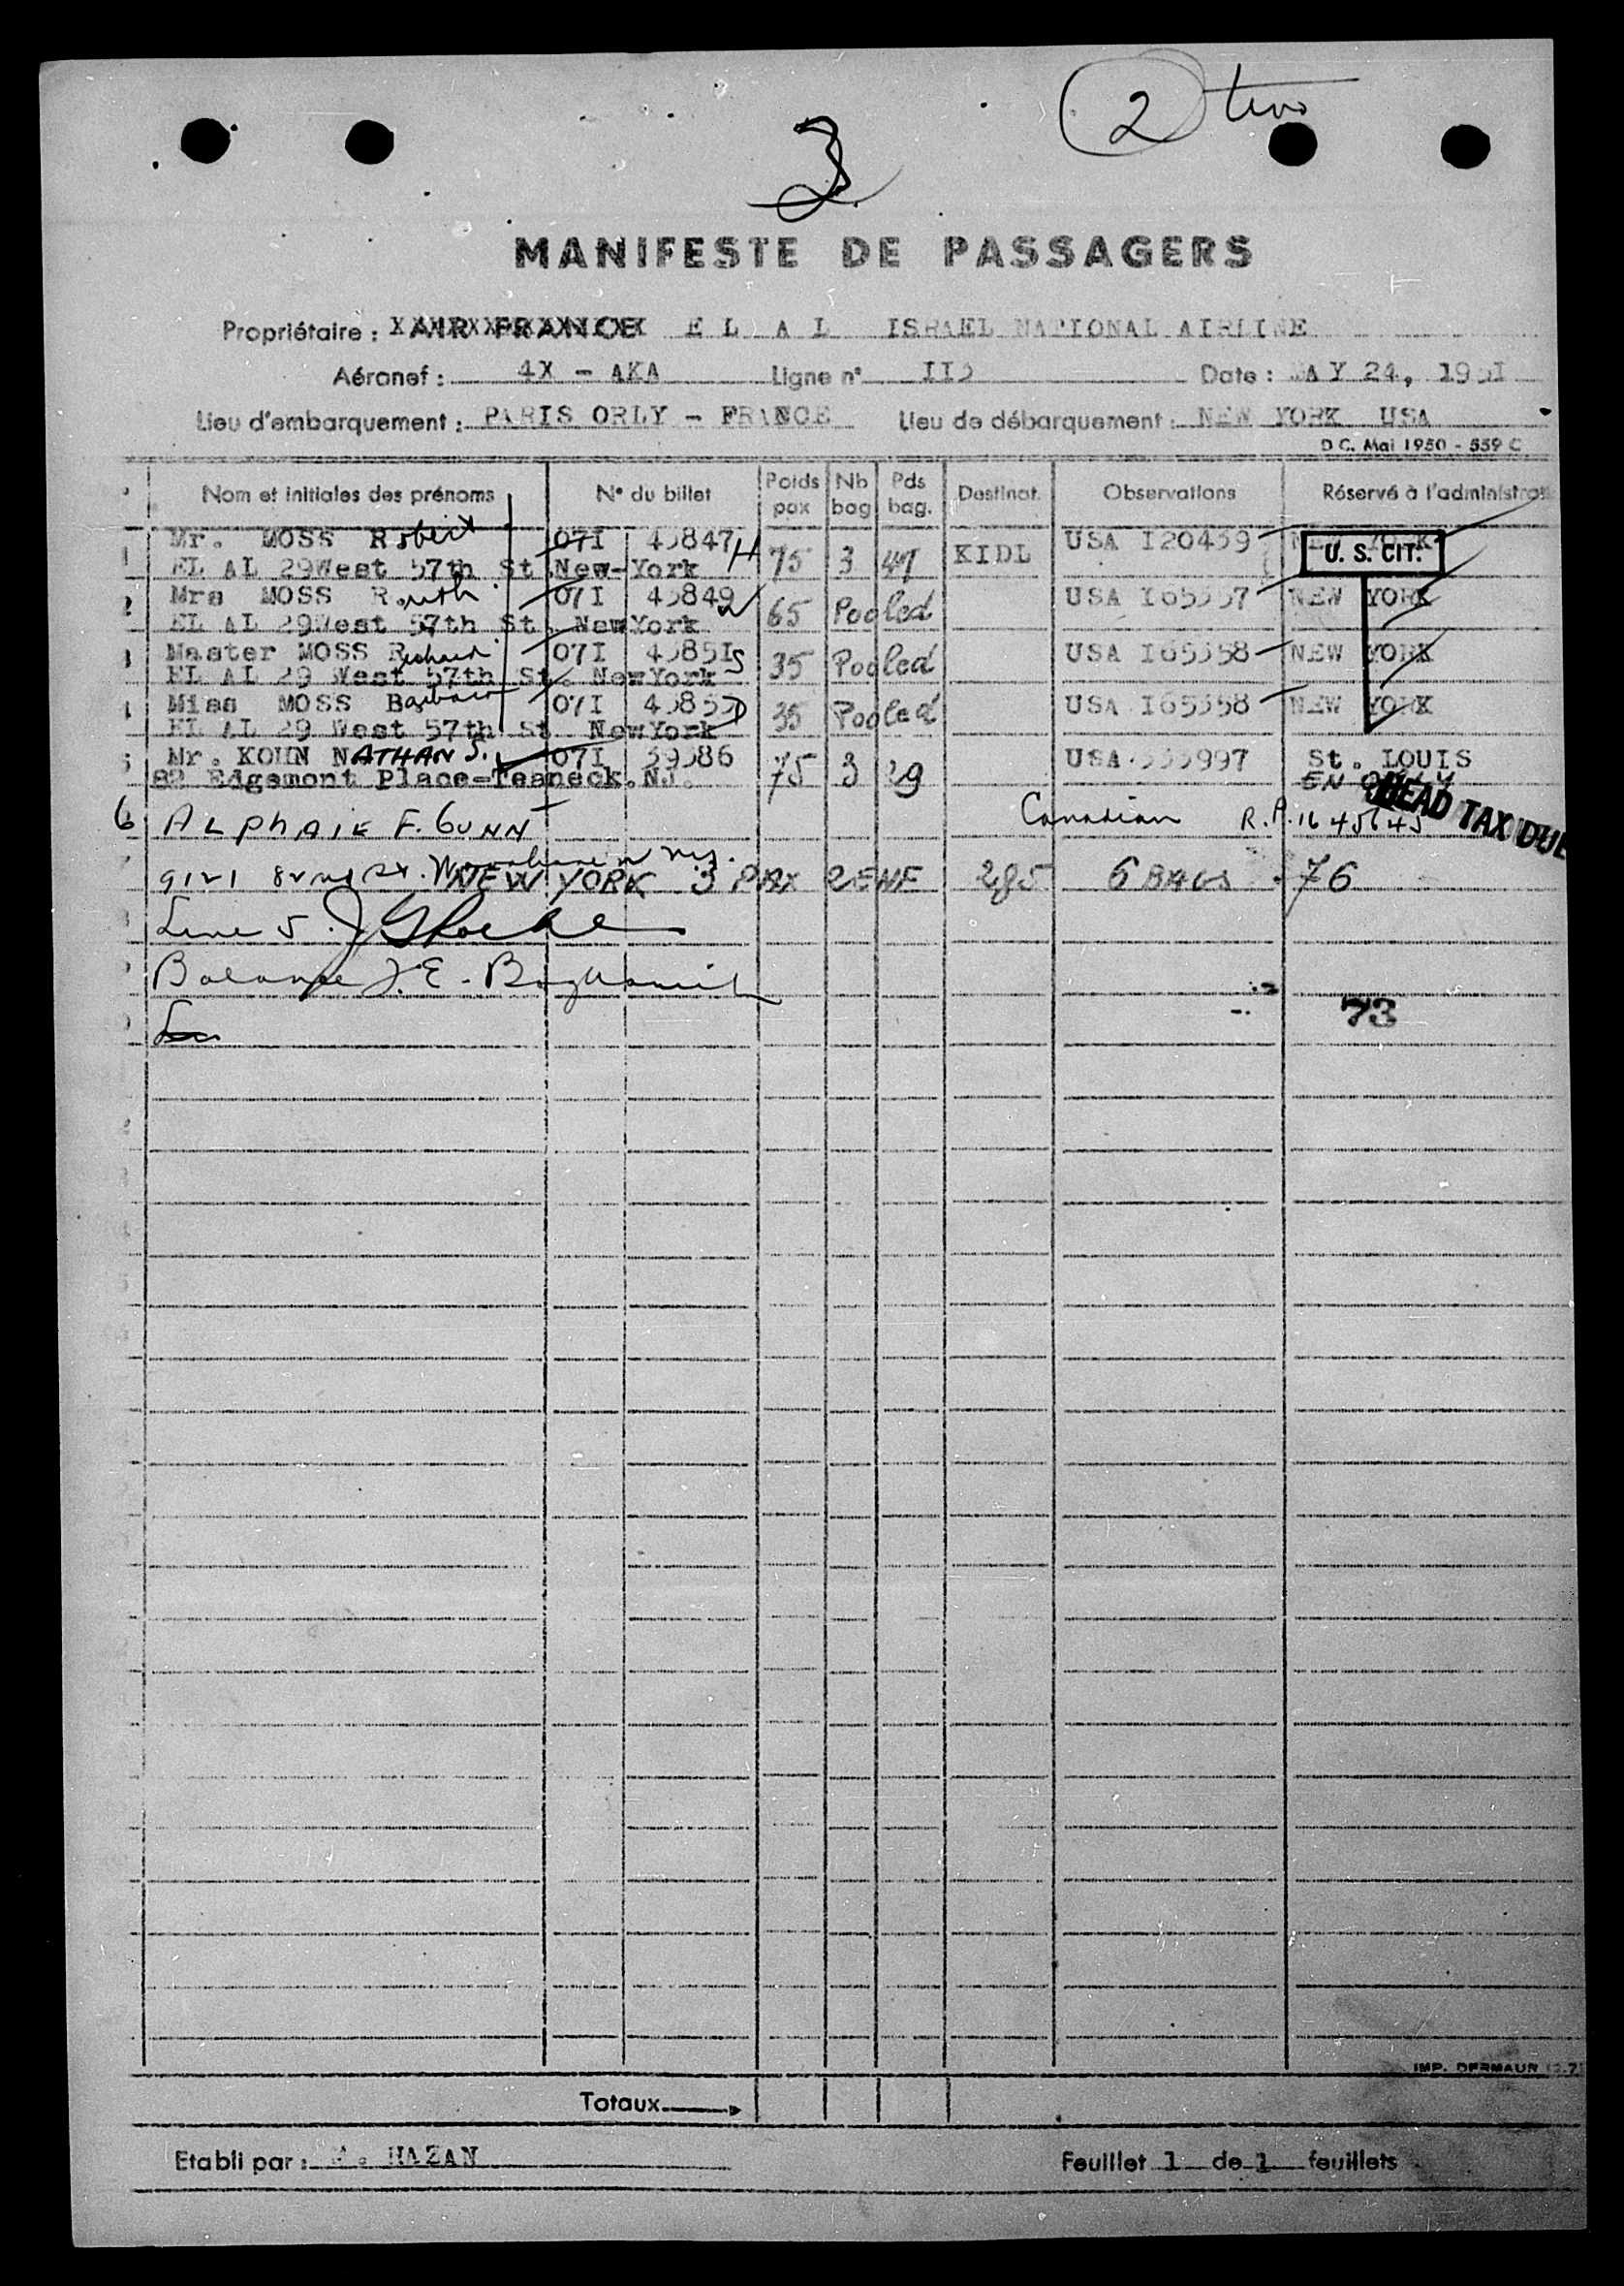 2 two
3
MANIFESTE DE PASSAGERS
Propriétaire : AIR FRANCE E L A L ISRAEL NATIONAL AIRLINE
Aéronef : 4X - AKA Ligne n° II5 Date : MAY 24, 1951
Lieu d'embarquement : PARIS ORLY - FRANCE Lieu de débarquement : NEW YORK USA
D C. Mai 1950 - 559 C
Nom et initiales des prénoms N° du billet Poids pax Nb bag Pds bag. Destinat. Observations Réservé à l'administration
1 Mr. MOSS Robert 071 45847 75 3 47 KIDL USA I20459 NEW YORK
U. S. CIT.
EL AL 29West 57th St New-York
2 Mrs MOSS Ruth 07I 45849 65 Pooled USA I65357 NEW YORK
EL AL 29West 57th St. NewYork
3 Master MOSS Richard 07I 4585I 35 Pooled USA I65358 NEW YORK
EL AL 29 West 57th St. NewYork
4 Miss MOSS Barbara 07I 45853 35 Pooled USA I65358 NEW YORK
EL AL 29 West 57th St NewYork
5 Mr. KOHN NATHAN S. 07I 39586 75 3 29 USA 555997 St. LOUIS
82 Edgemont Place-Teaneck.NJ.
HEAD TAX DUE
6 ALPhAIE F. GUNN Canadian R.P. 1645645
9121 82nd St. NEW YORK 3 PAX 2 ENF 285 6 BAGS 76
Line 5.
Balance J. E.
73
IMP. DERMAUR
Totaux
Etabli par : M. HAZAN Feuillet 1 de 1 feuillets